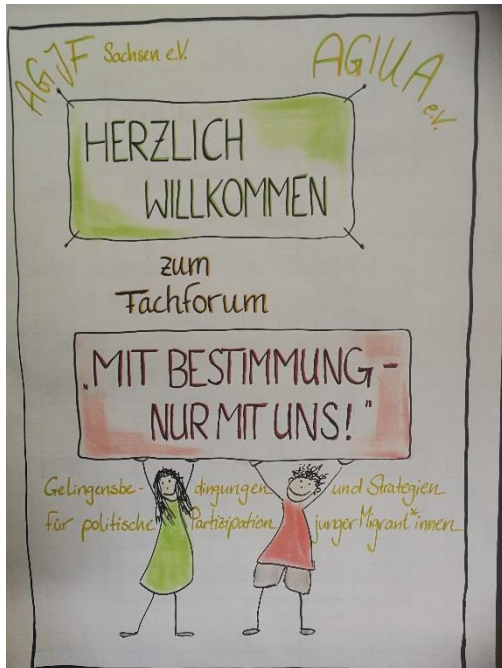 AGJF Sachsen e.V.
AGIUA e.V.
HERZLICH
WILLKOMMEN
zum
Fachforum
„MIT BESTIMMUNG -
NUR MIT UNS!"
Gelingensbe- dingungen und Strategien
für politische Partizipation junger Migrant*innen